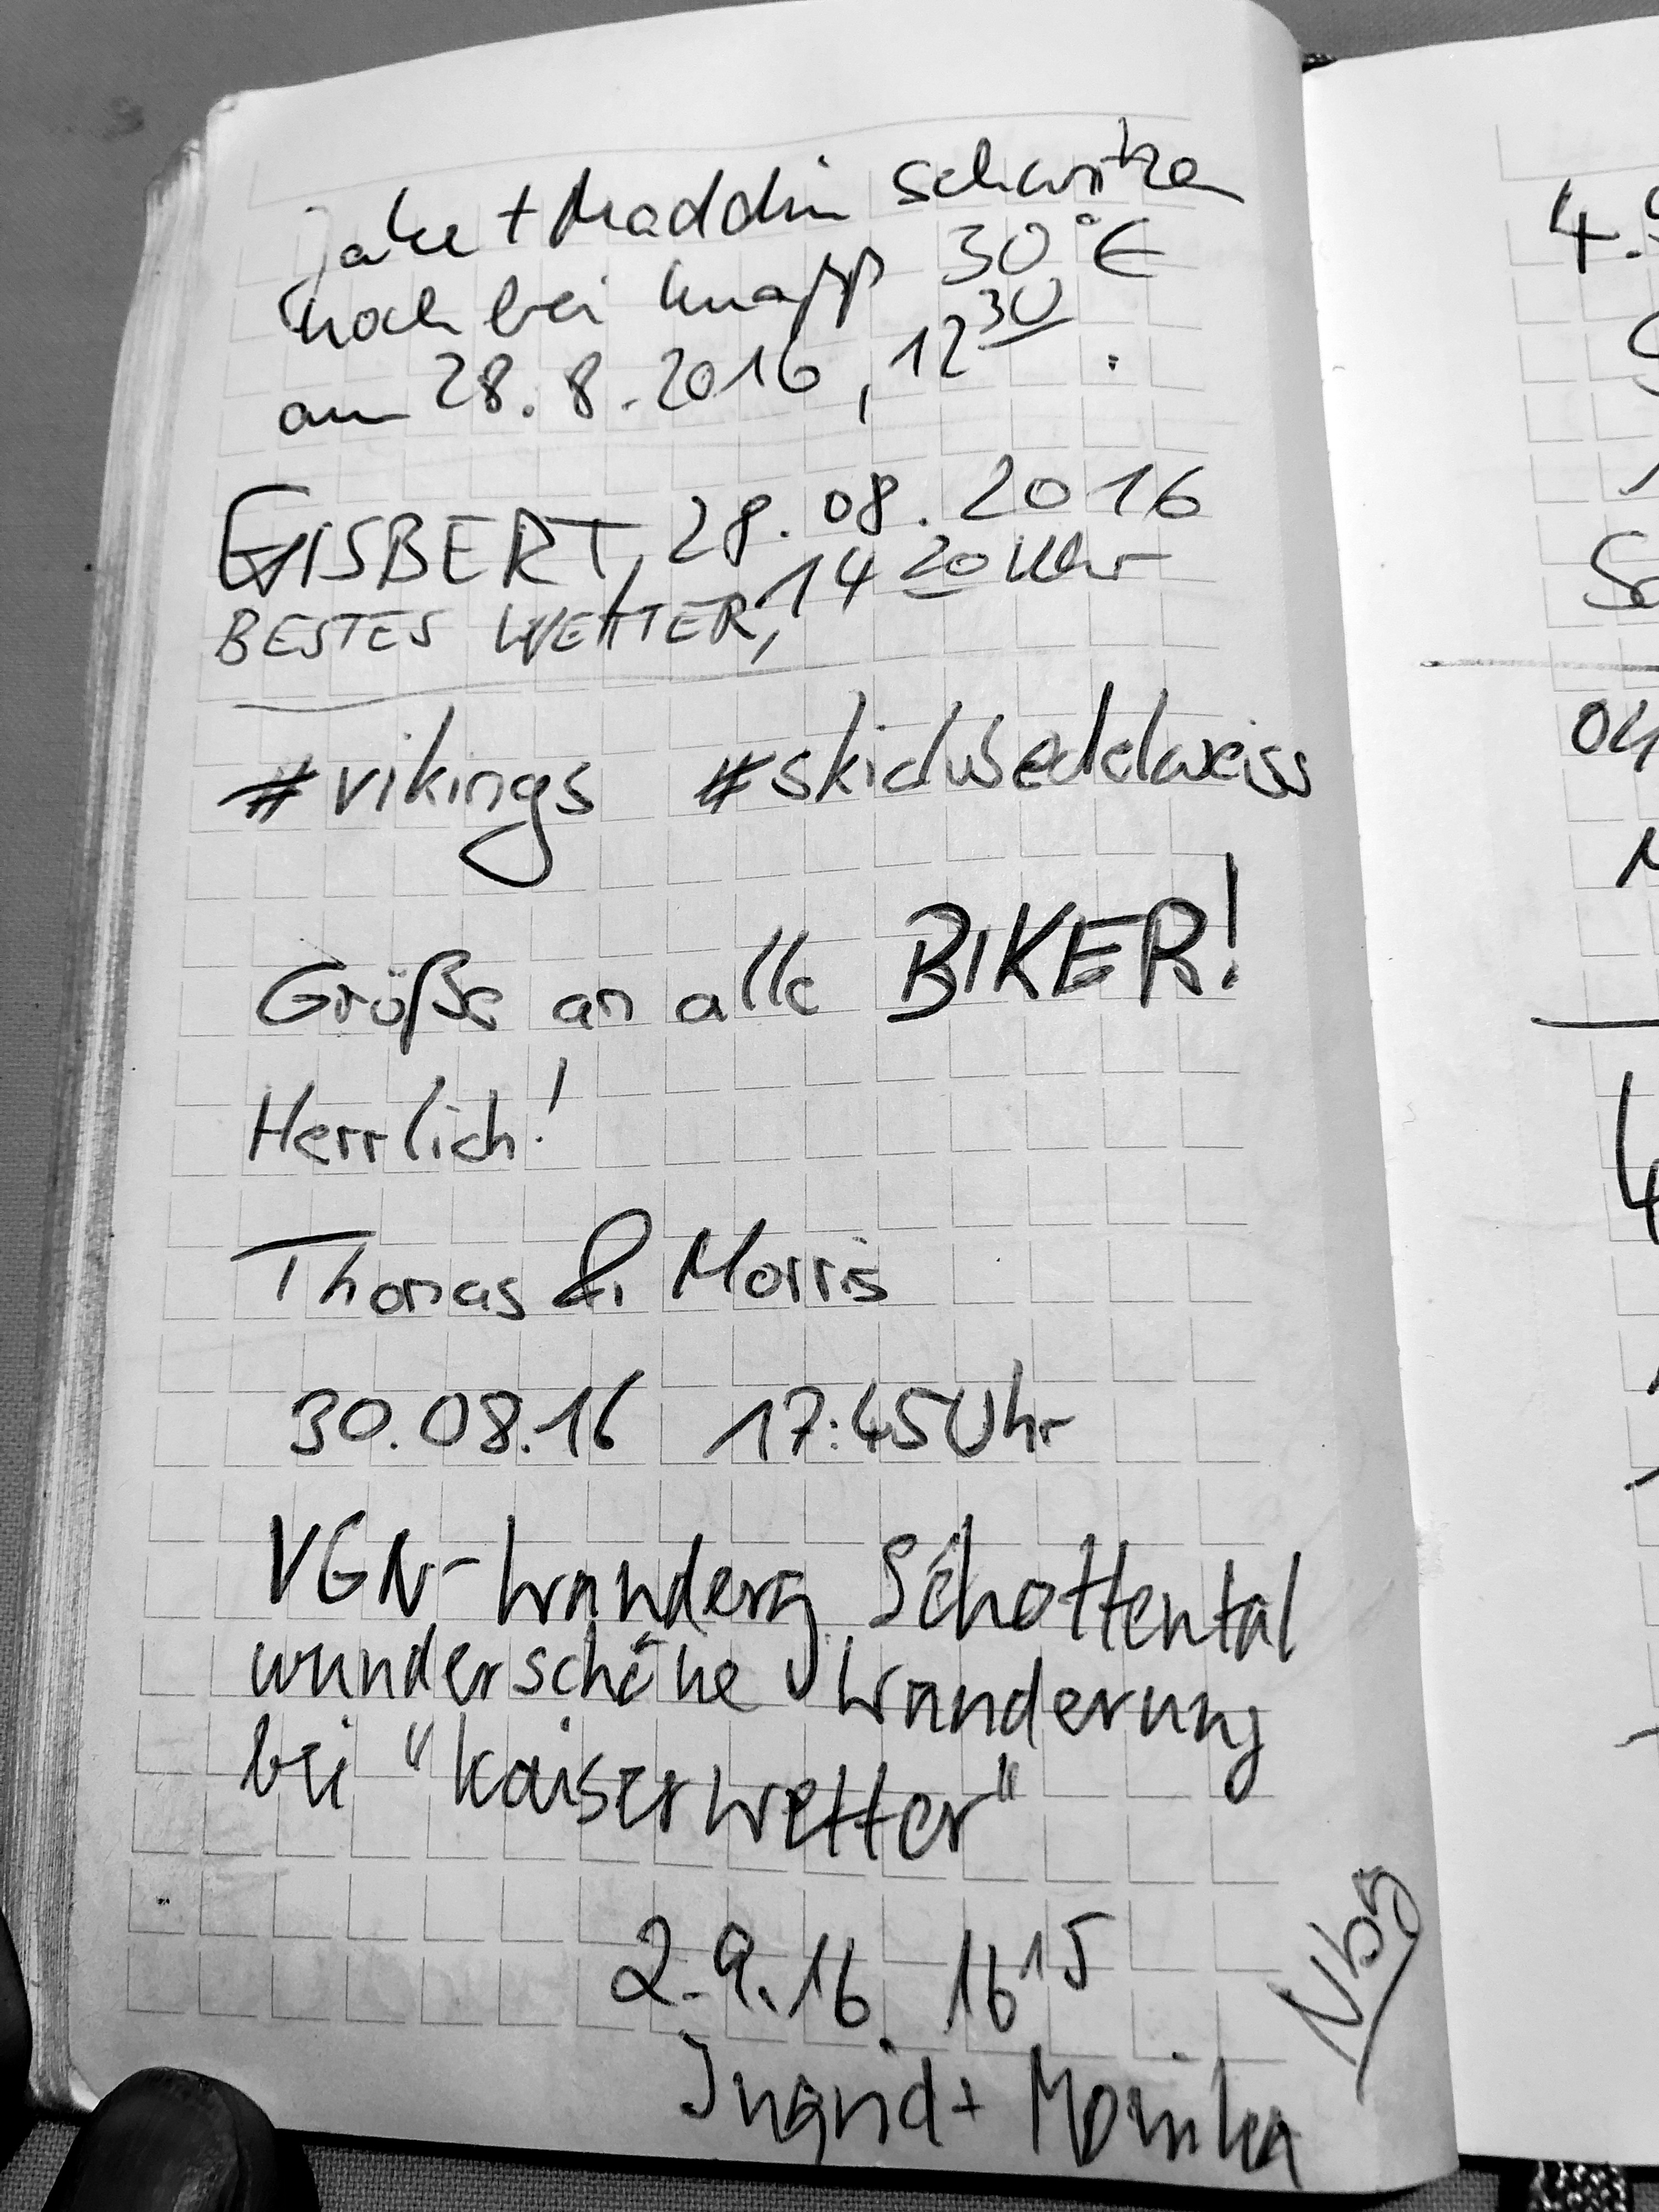 Jake + Maddin schwitzen
noch bei knapp 30°C
am 28.8.2016, 12 30
GISBERT, 28.08.2016
BESTES WETTER, 14 20 Uhr
#vikings #skidwsedelweiss
Größe an alle BIKER!
Herrlich!
Thomas & Morris
30.08.16 17:45 Uhr
VGN-Wanderg Schottental
wunderschöne Wanderung
bei "Kaiserwetter"
2.9.16. 16 15
Nbg
Ingrid + Monika
4.
S
04